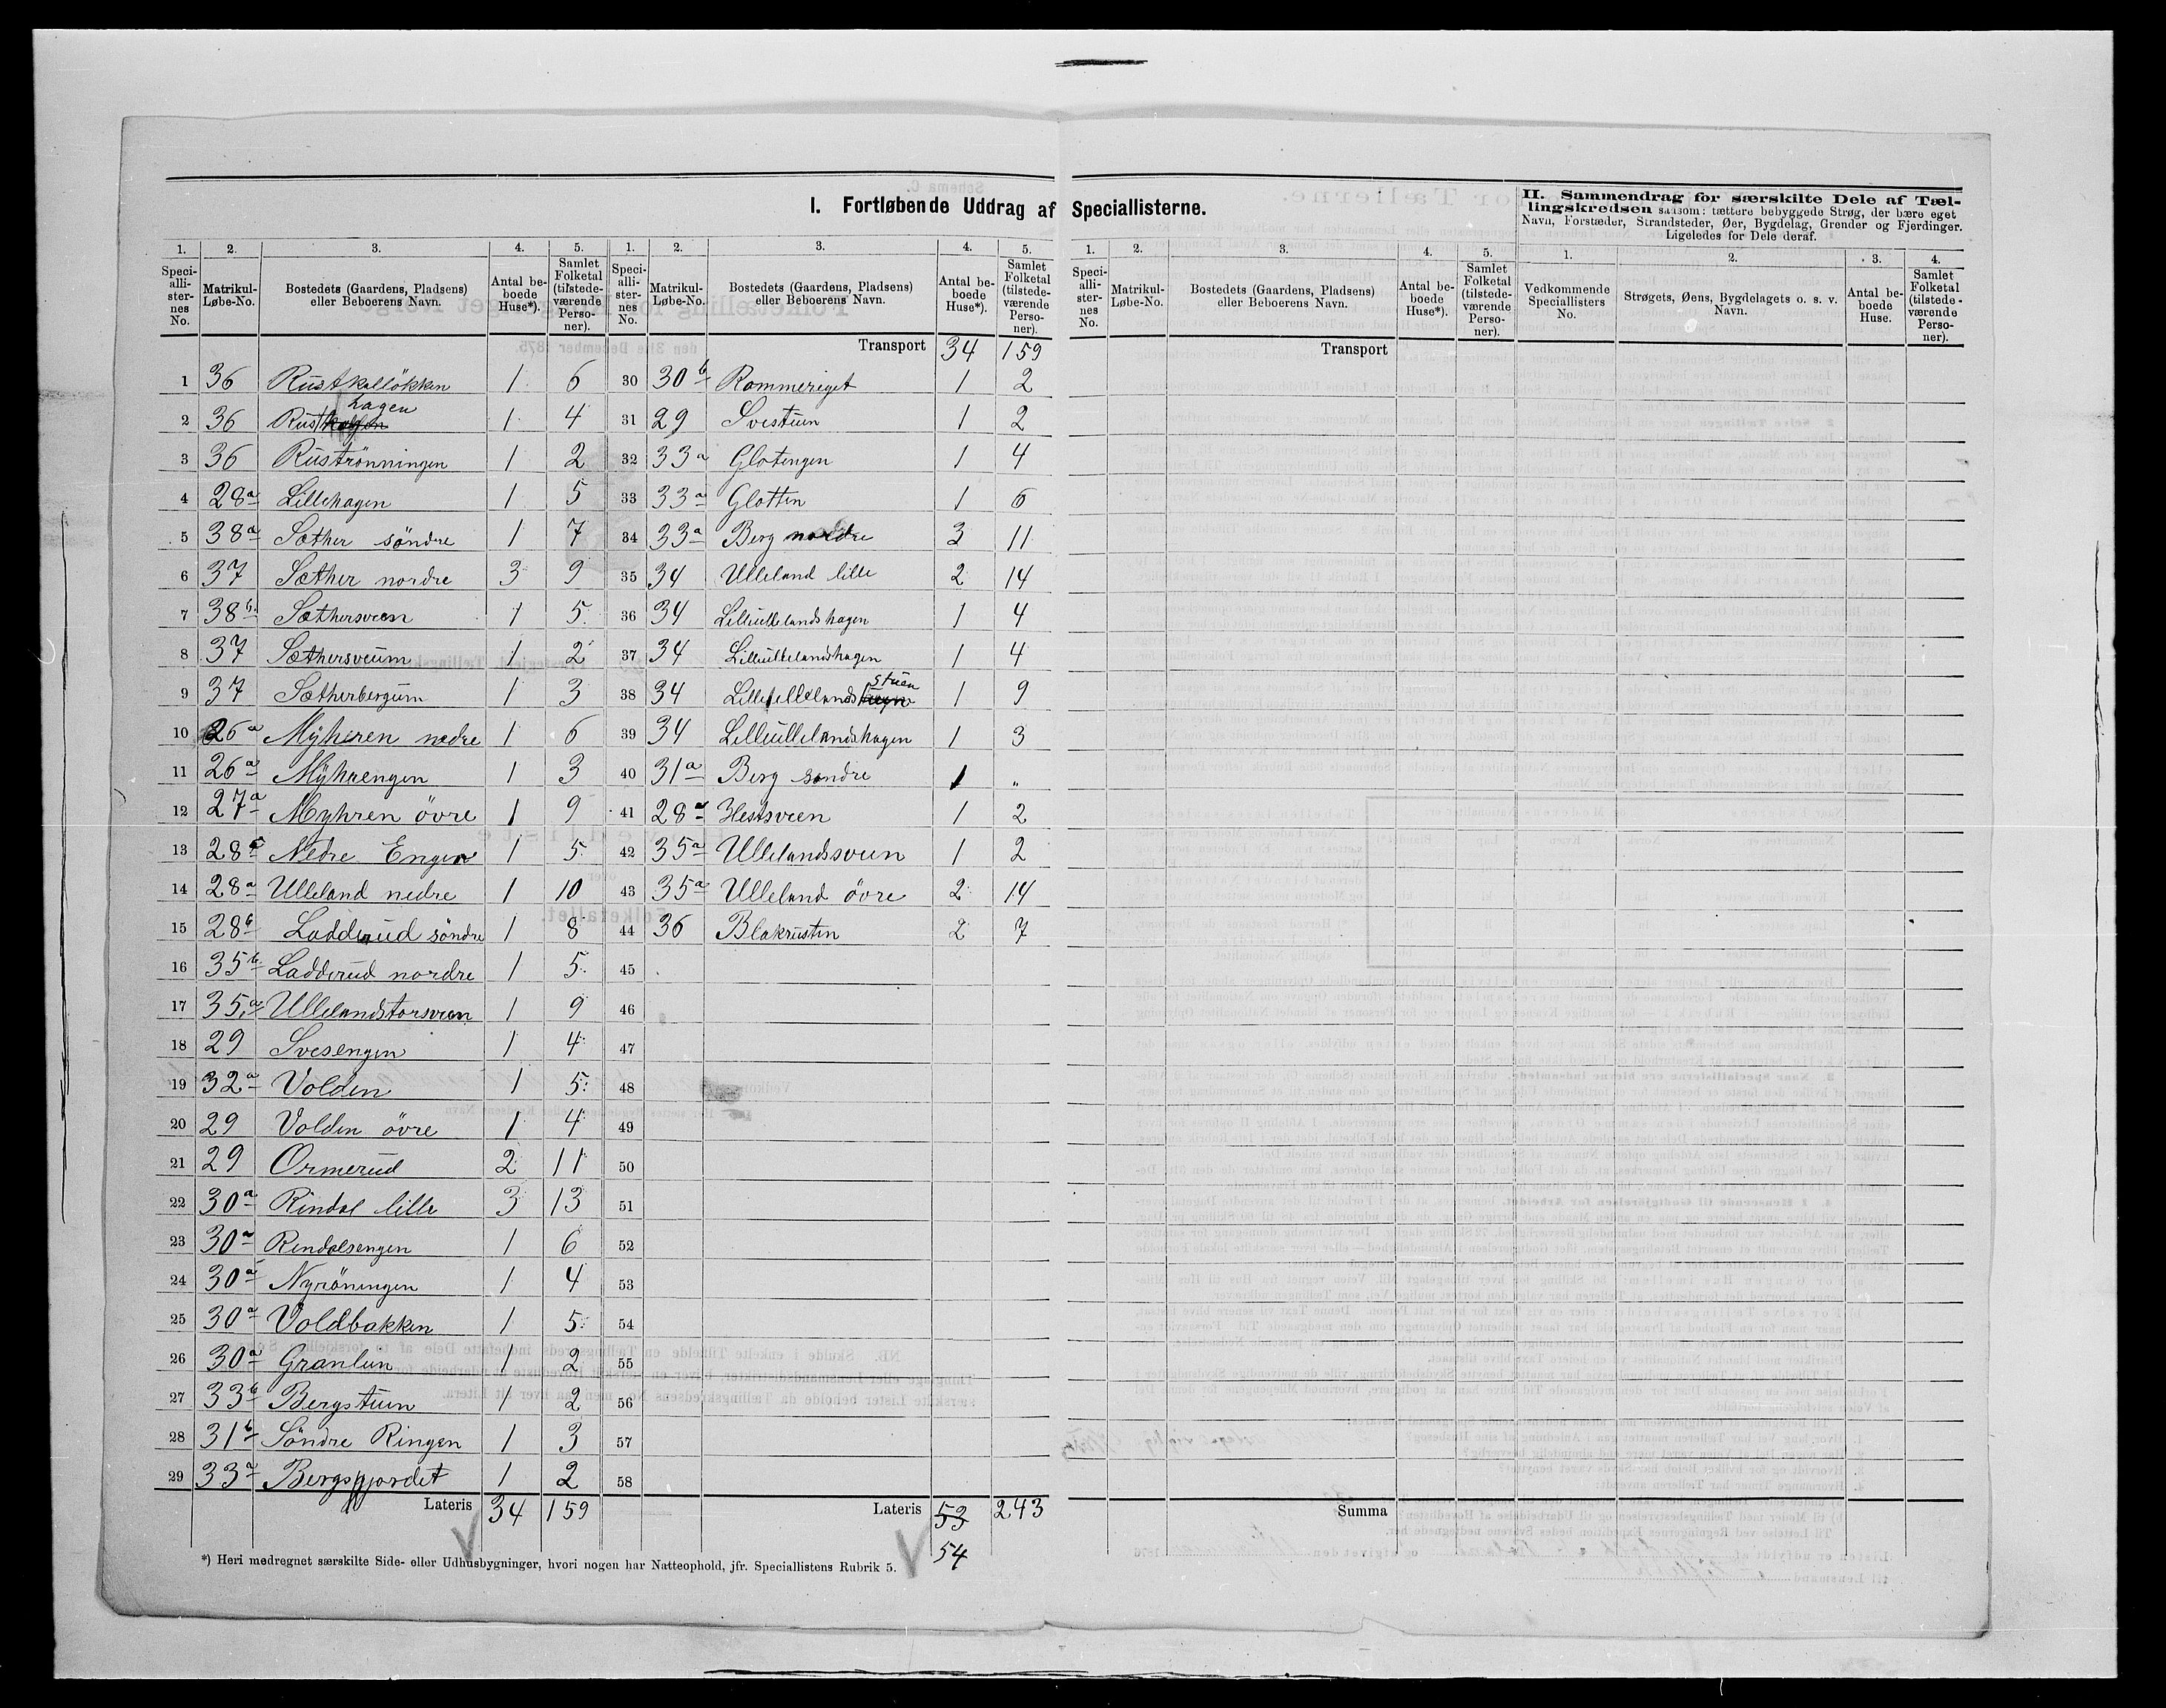 I. Fortløbende Uddrag af Speciallisterne.
II. Sammendrag for særskilte Dele af Tællingskredsen saasom: tættere bebyggede Strøg, der bære eget Navn, Forstæder, Strandsteder, Øer, Bygdelag, Grender og Fjerdinger. Ligeledes for Dele deraf.
1. 2. 3. 4. 5. 1. 2. 3. 4. 5. 1. 2. 3. 4. 5. 1. 2. 3. 4.
Speciallisternes No. Matrikul-Løbe-No. Bostedets (Gaardens, Pladsens) eller Beboerens Navn. Antal beboede Huse*). Samlet Folketal (tilstedeværende Personer).
Speciallisternes No. Matrikul-Løbe-No. Bostedets (Gaardens, Pladsens) eller Beboerens Navn. Antal beboede Huse*). Samlet Folketal (tilstedeværende Personer).
Speciallisternes No. Matrikul-Løbe-No. Bostedets (Gaardens, Pladsens) eller Beboerens Navn. Antal beboede Huse*). Samlet Folketal (tilstedeværende Personer).
Vedkommende Speciallisters No. Strøgets, Øens, Bygdelagets o. s. v. Navn. Antal beboede Huse. Samlet Folketal (tilstedeværende Personer).
1 36 Rustkalløkken 1 6
2 36 Rusthagen 1 4
3 36 Ruströnningen 1 2
4 28a Lillehagen 1 5
5 38a Sæther söndre 1 7
6 37 Sæther nordre 3 9
7 38b Sæthersveen 1 5
8 37 Sæthersveum 1 2
9 37 Sætherbergum 1 3
10 26a Myhren nedre 1 6
11 26a Myhrengen 1 3
12 27a Myhren övre 1 9
13 28 Nedre Engen 1 5
14 28a Ulleland nedre 1 10
15 28b Ladderud söndre 1 8
16 35b Ladderud nordre 1 5
17 35a Ullelandstorsveen 1 9
18 29 Svesengen 1 4
19 32a Volden 1 5
20 29 Volden övre 1 4
21 29 Ormerud 2 11
22 30a Rindal lille 3 13
23 30a Rindalsengen 1 6
24 30a Nyröningen 1 4
25 30a Voldbakken 1 5
26 30a Granlien 1 2
27 33b Bergstuen 1 2
28 31b Söndre Ringen 1 3
29 33a Bergsfjordet 1 2
Lateris 34 159
Transport 34 159
30 30b Rommeriget 1 2
31 29 Svestuen 1 2
32 33a Glotengen 1 4
33 33a Glotten 1 6
34 33a Berg nordre 3 11
35 34 Ulleland lille 2 14
36 34 Lilleullelandshagen 1 4
37 34 Lilleullelandshagen 1 4
38 34 Lilleullelandsstuen 1 9
39 34 Lilleullelandshagen 1 3
40 31a Berg søndre 1 "
41 28a Hestsveen 1 2
42 35a Ullelandsveen 1 2
43 35a Ulleland övre 2 14
44 36 Blakrusten 2 7
45
46
47
48
49
50
51
52
53
54
55
56
57
58
Lateris 53 243
54
Transport
Summa
*) Heri medregnet særskilte Side- eller Udhusbygninger, hvori nogen har Natteophold, jfr. Speciallistens Rubrik 5.